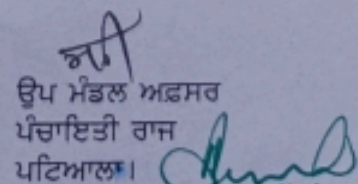 ਉਪ ਮੰਡਲ ਅਫ਼ਸਰ
ਪੰਚਾਇਤੀ ਰਾਜ
ਪਟਿਆਲਾ।